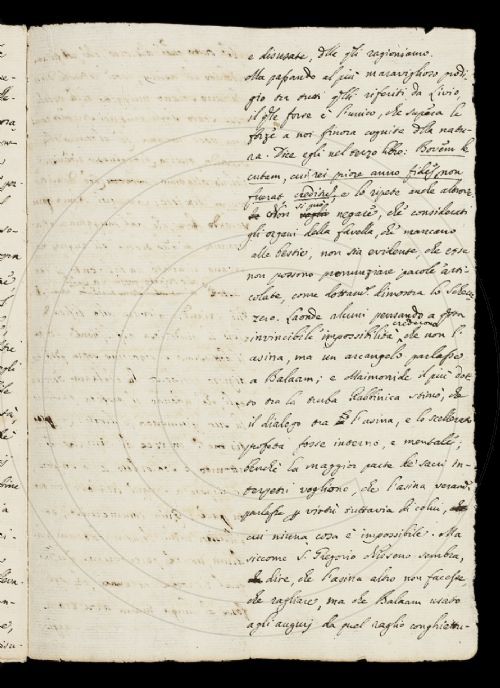 e disusate, dlle qli ragioniamo.
Ma passando al più maraviglioso prodi-
gio tra tutti qlli riferiti da Livio,
il qle forse è l'unico, che superà le
forze a noi finora cognite dlla natu-
ra. Dice egli nel terzo libro. Bovem lo
cutam, cui rei priore anno fides non
fuerat creditū, e lo ripete anche altrove.
Non si può negare, che considerati
gli organi della favella, che mancano
alle bestie, non sia evidente, che esse
non possono pronunziare parole arti-
colate, come dottamte. dimostra lo Scheu-
zero. Laonde alcuni pensando a qsta
invincibile impossibilità crederono che non l'
asina, ma un arcangelo parlasse
a Balaam; e Maimonide il più dot-
to tra la turba Rabbinica stimò, che
il dialogo tra l'asina, e lo scellerato
profeta fosse interno, e mentale;
benchè la maggior parte de' sacri in-
terpetri vogliono, che l'asina veramte
parlasse p virtù tuttavia di colui, a
cui niuna cosa è impossibile. Ma
siccome S. Gregorio Nisseno sembra,
dire, che l'asina altro non facesse,
che ragliare, ma che Balaam usato
agli augurj da quel raglio conghiettu-